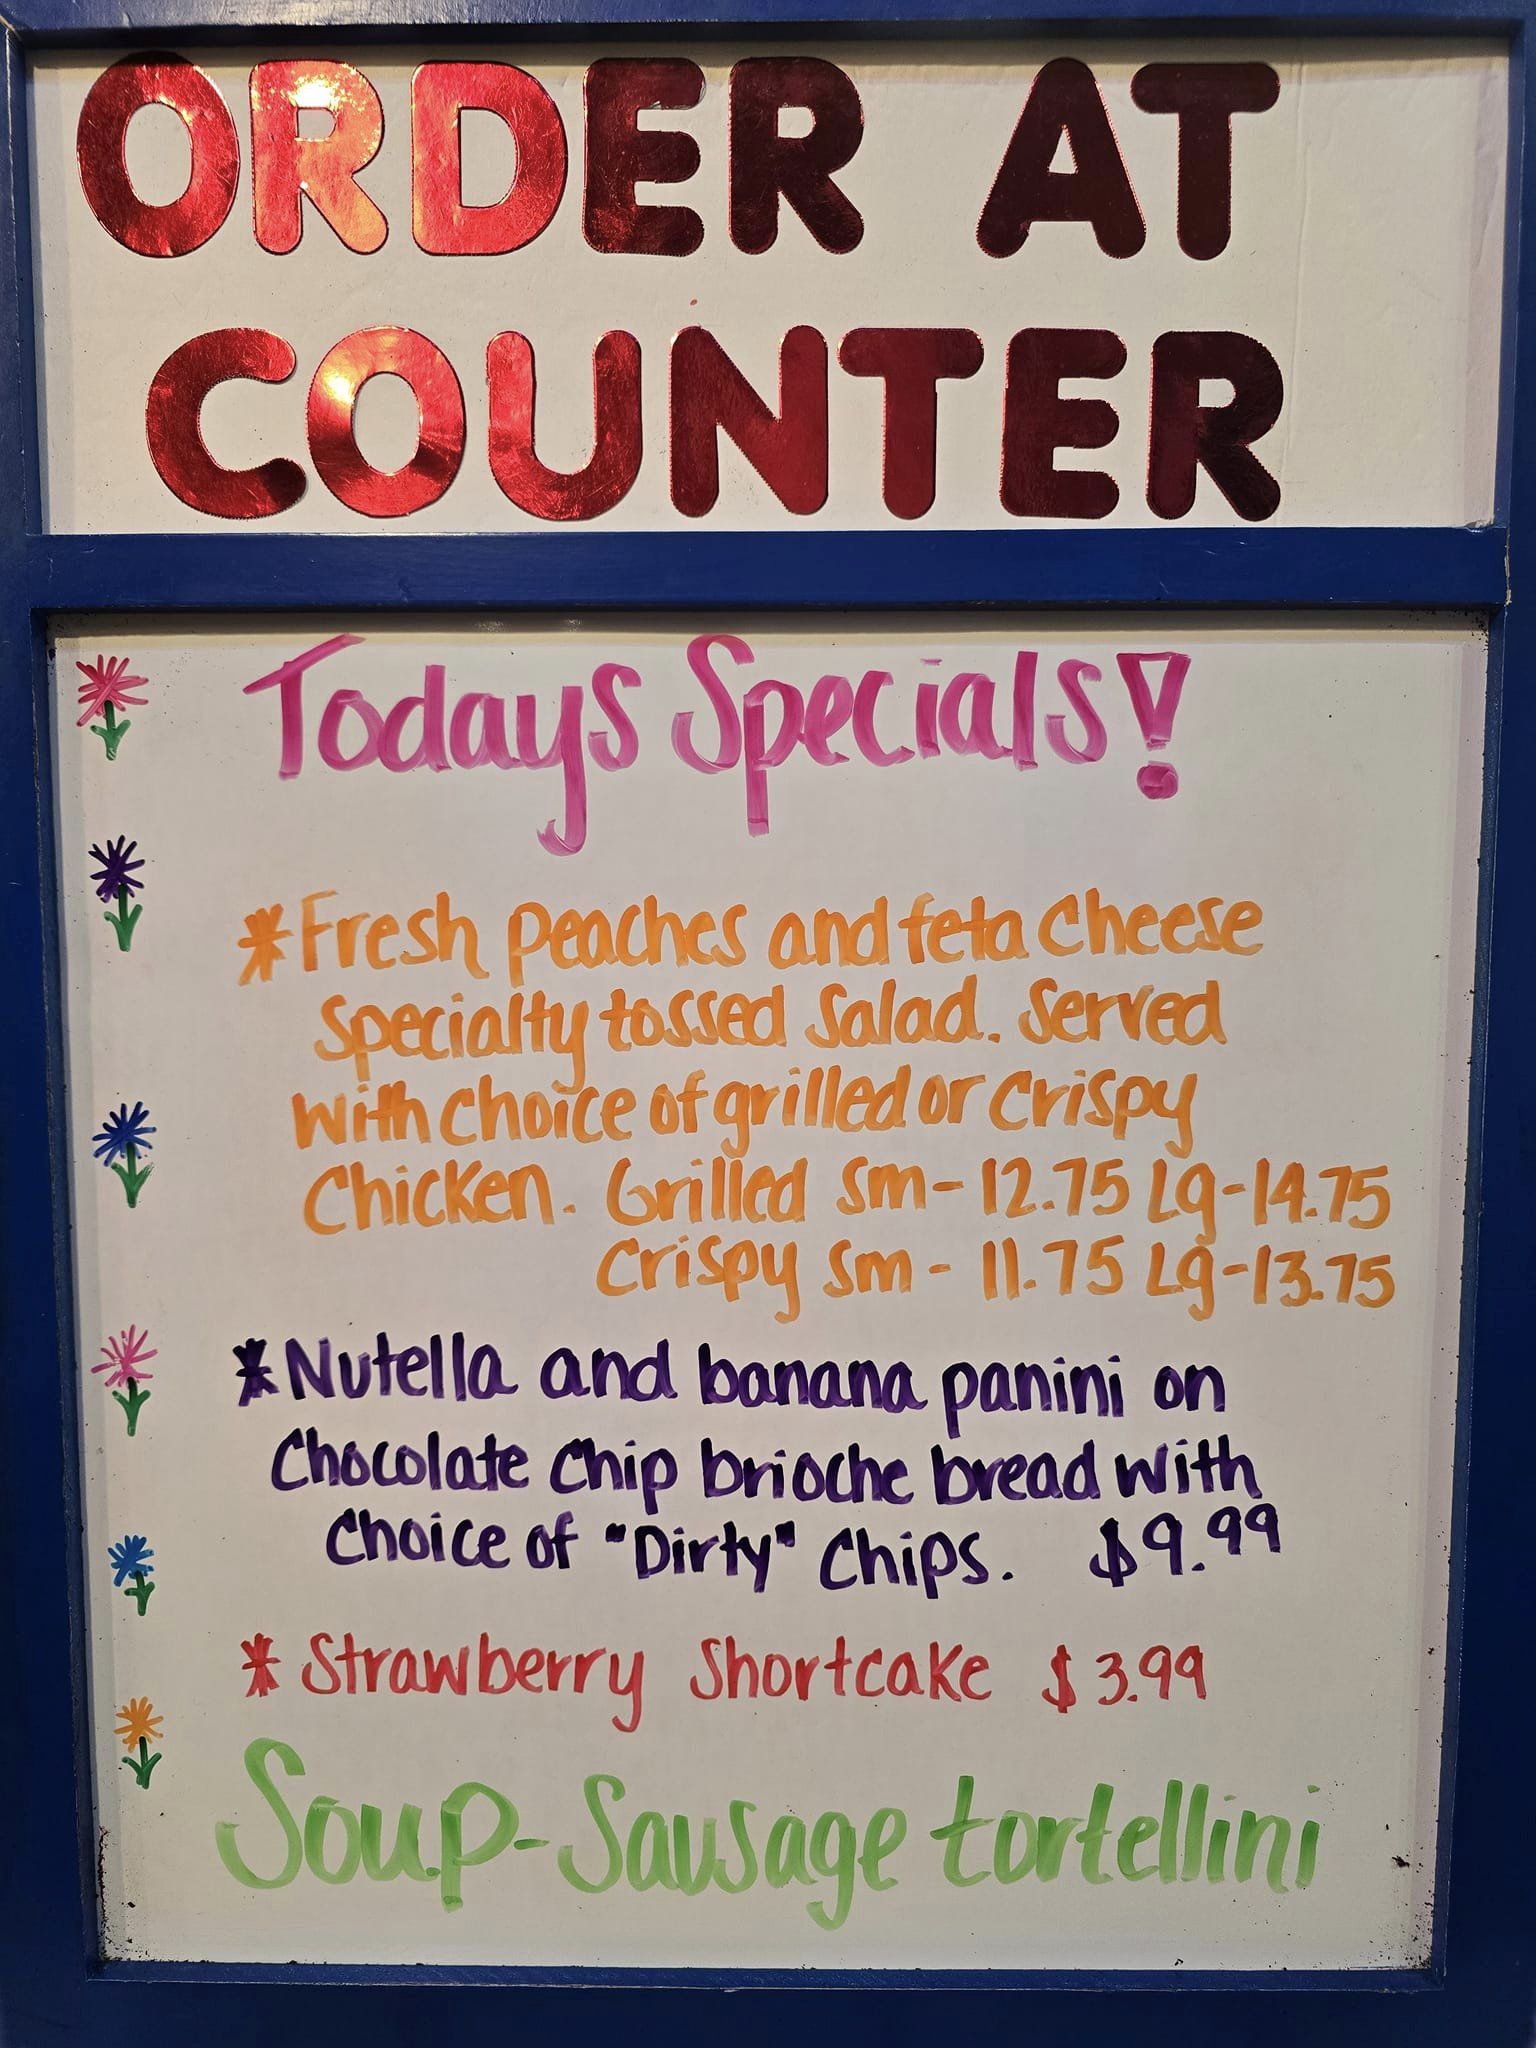 ORDER AT
COUNTER
Todays Specials!
*Fresh peaches and feta cheese
specialty tossed salad. Served
with choice of grilled or crispy
chicken. Grilled sm- 12.75 Lg-14.75
crispy sm - 11.75 Lg-13.75
*Nutella and banana panini on
chocolate chip brioche bread with
choice of "Dirty" chips. $9.99
* Strawberry shortcake $3.99
Soup-Sausage tortellini